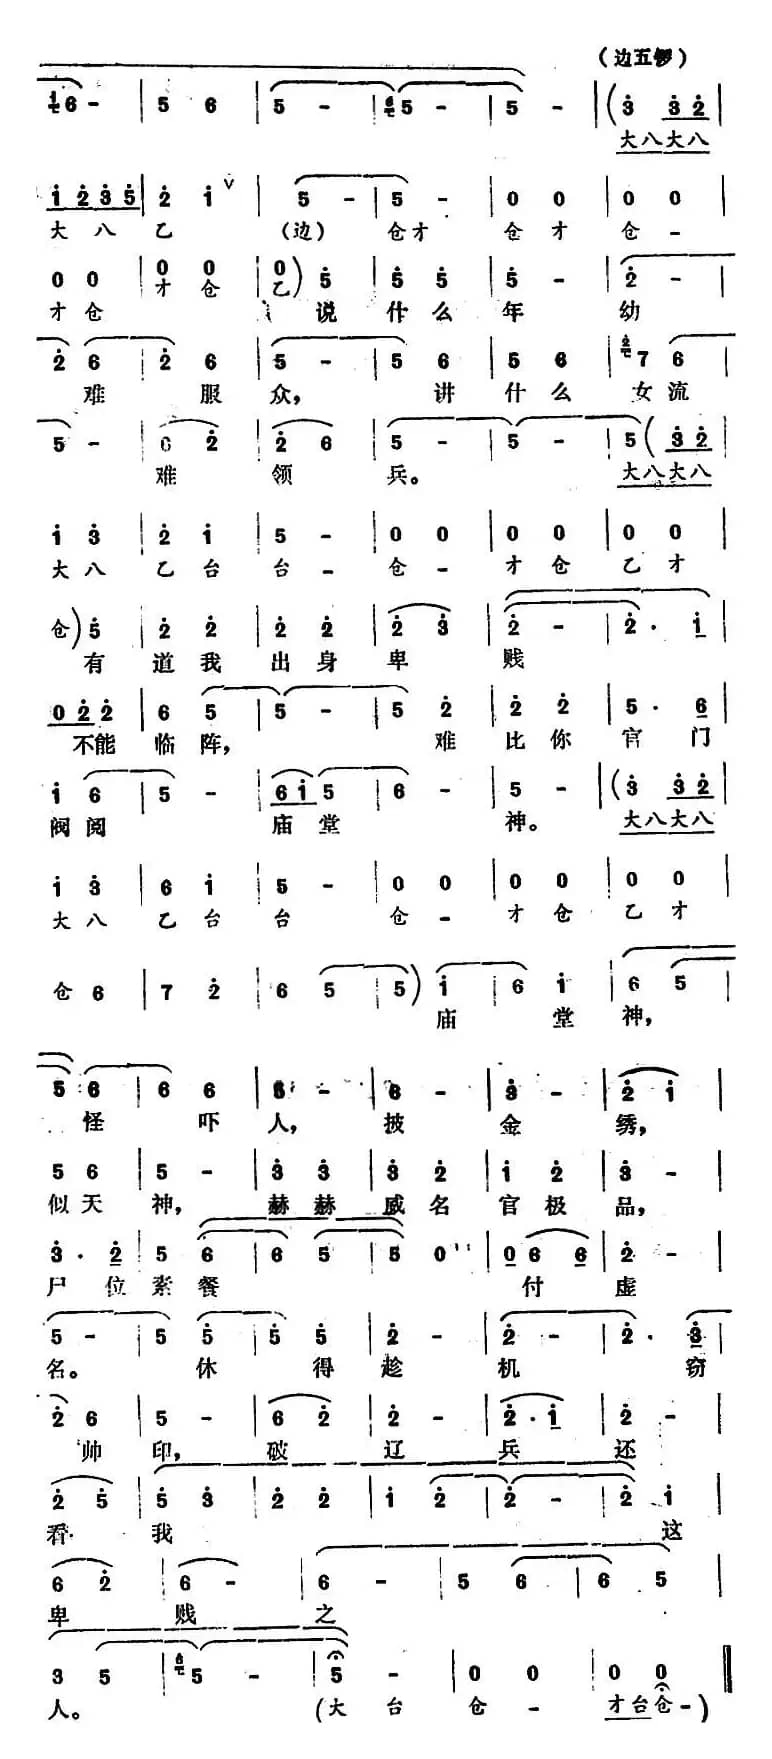 （边五锣）
1 6 - | 5 6 | 5 - | 6 5 - | 5 - | ( 3 3 2
大八大八
1 2 3 5 | 2 1 ∨ | 5 - | 5 - | 0 0 | 0 0 |
大 八 乙 （边） 仓才 仓才 仓 -
0 0 | 0 0 | 0 ) 5 | 5 5 | 5 - | 2 - |
才仓 才仓 乙 说 什么 年 幼
2 6 | 2 6 | 5 - | 5 6 | 5 6 | 7 6 |
难 服 众， 讲 什么 女流
5 - | 6 2 | 2 6 | 5 - | 5 - | 5 ( 3 2
难 领 兵。 大八大八
1 3 | 2 1 | 5 - | 0 0 | 0 0 | 0 0 |
大八 乙台 台 - 仓 - 才仓 乙才
仓 ) 5 | 2 2 | 2 2 | 2 3 | 2 - | 2 . 1 |
有 道我 出身 卑 贱
0 2 2 | 6 5 | 5 - | 5 2 | 2 2 | 5 . 6 |
不能 临阵， 难 比你 官 门
1 6 | 5 - | 6 1 5 | 6 - | 5 - | ( 3 3 2 |
阀阅 庙堂 神。 大八大八
1 3 | 6 1 | 5 - | 0 0 | 0 0 | 0 0 |
大八 乙台 台 仓 - 才仓 乙才
仓 6 | 7 2 | 6 5 | 5 ) 1 | 6 1 | 6 5 |
庙 堂 神，
5 6 | 6 6 | 6 - | 6 - | 3 - | 2 1 |
怪 吓 人， 披 金 绣，
5 6 | 5 - | 3 3 | 3 2 | 1 2 | 3 - |
似天 神， 赫赫 威名 官极 品，
3 . 2 | 5 6 | 6 5 | 5 0 | 0 6 6 | 2 - |
尸 位 素餐 付 虚
5 - | 5 5 | 5 5 | 2 - | 2 - | 2 . 3 |
名。 休 得 趁 机 窃
2 6 | 5 - | 6 2 | 2 - | 2 . 1 | 2 - |
帅 印， 破 辽 兵 还
2 5 | 5 3 | 2 2 | 1 2 | 2 - | 2 1 |
看 我 这
6 2 | 6 - | 6 - | 5 6 | 6 5 |
卑 贱 之
3 5 | 5 - | 5 - | 0 0 | 0 0 ‖
人。 （大 台 仓 - 才台仓 - ）